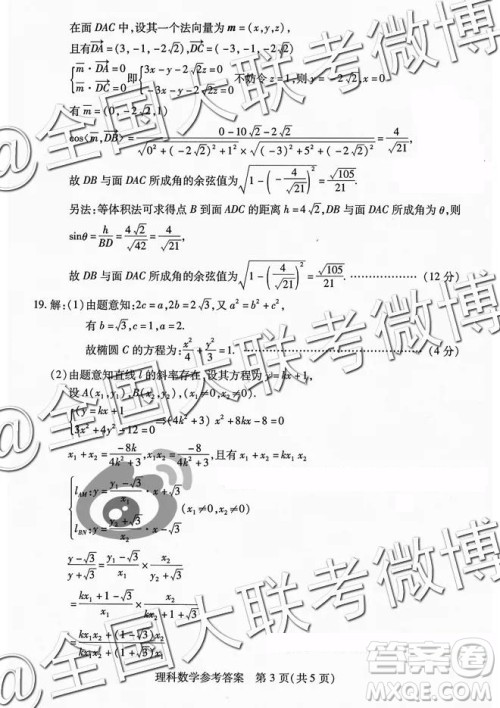 在面 DAC 中,设其一个法向量为 m=(x,y,z),
且有 DA=(3,-1,-2√2),DC=(-3,-1,-2√2)
{m·DA=0 m·DC=0 即{3x-y-2√2z=0 -3x-y-2√2z=0 不妨令 z=1,则 y=-2√2,x=0
有 m=(0,-2√2,1)
cos<m,DB>=(0-10√2-2√2)/(√(0²+(-2√2)²+1²)×√((-3)²+5²+(-2√2)²))=-4/√21,
故 DB 与面 DAC 所成角的余弦值为√(1-(-4/√21)²)=√105/21.
另法:等体积法可求得点 B 到面 ADC 的距离 h=4√2,DB 与面 DAC 所成角为 θ,则
sinθ=h/BD=4√2/√42=4/√21,
故 DB 与面 DAC 所成角的余弦值为√(1-(4/√21)²)=√105/21. ………… (12 分)
19. 解:(1)由题意知:2c=a,2b=2√3,又 a²=b²+c²,
有 b=√3,c=1,a=2.
故椭圆 C 的方程为:x²/4+y²/3=1. ………… (4 分)
(2)由题意知直线 l 的斜率存在,设其方程为 y=kx+1,
设 A(x₁,y₁),B(x₂,y₂),(x₁≠0,x₂≠0)
{y=kx+1 3x²+4y²=12 ⇒(4k²+3)x²+8kx-8=0
x₁+x₂=-8k/(4k²+3),x₁·x₂=-8/(4k²+3),且有 y₁=kx₁+1,y₂=kx₂+1
{l_AM:y=(y₁-√3)/x₁·x+√3 l_BN:y=(y₂+√3)/x₂·x-√3 (x₁≠0,x₂≠0)
(y-√3)/(y+√3)=(y₁-√3)/x₁×x₂/(y₂+√3)
=(kx₁+1-√3)/x₁×x₂/(kx₂+1+√3)
=(kx₁x₂+(1-√3)x₂)/(kx₁x₂+(1+√3)x₁)
理科数学参考答案 第 3 页(共 5 页)
@全国大联考微博
@全国大联考微博
答案卷